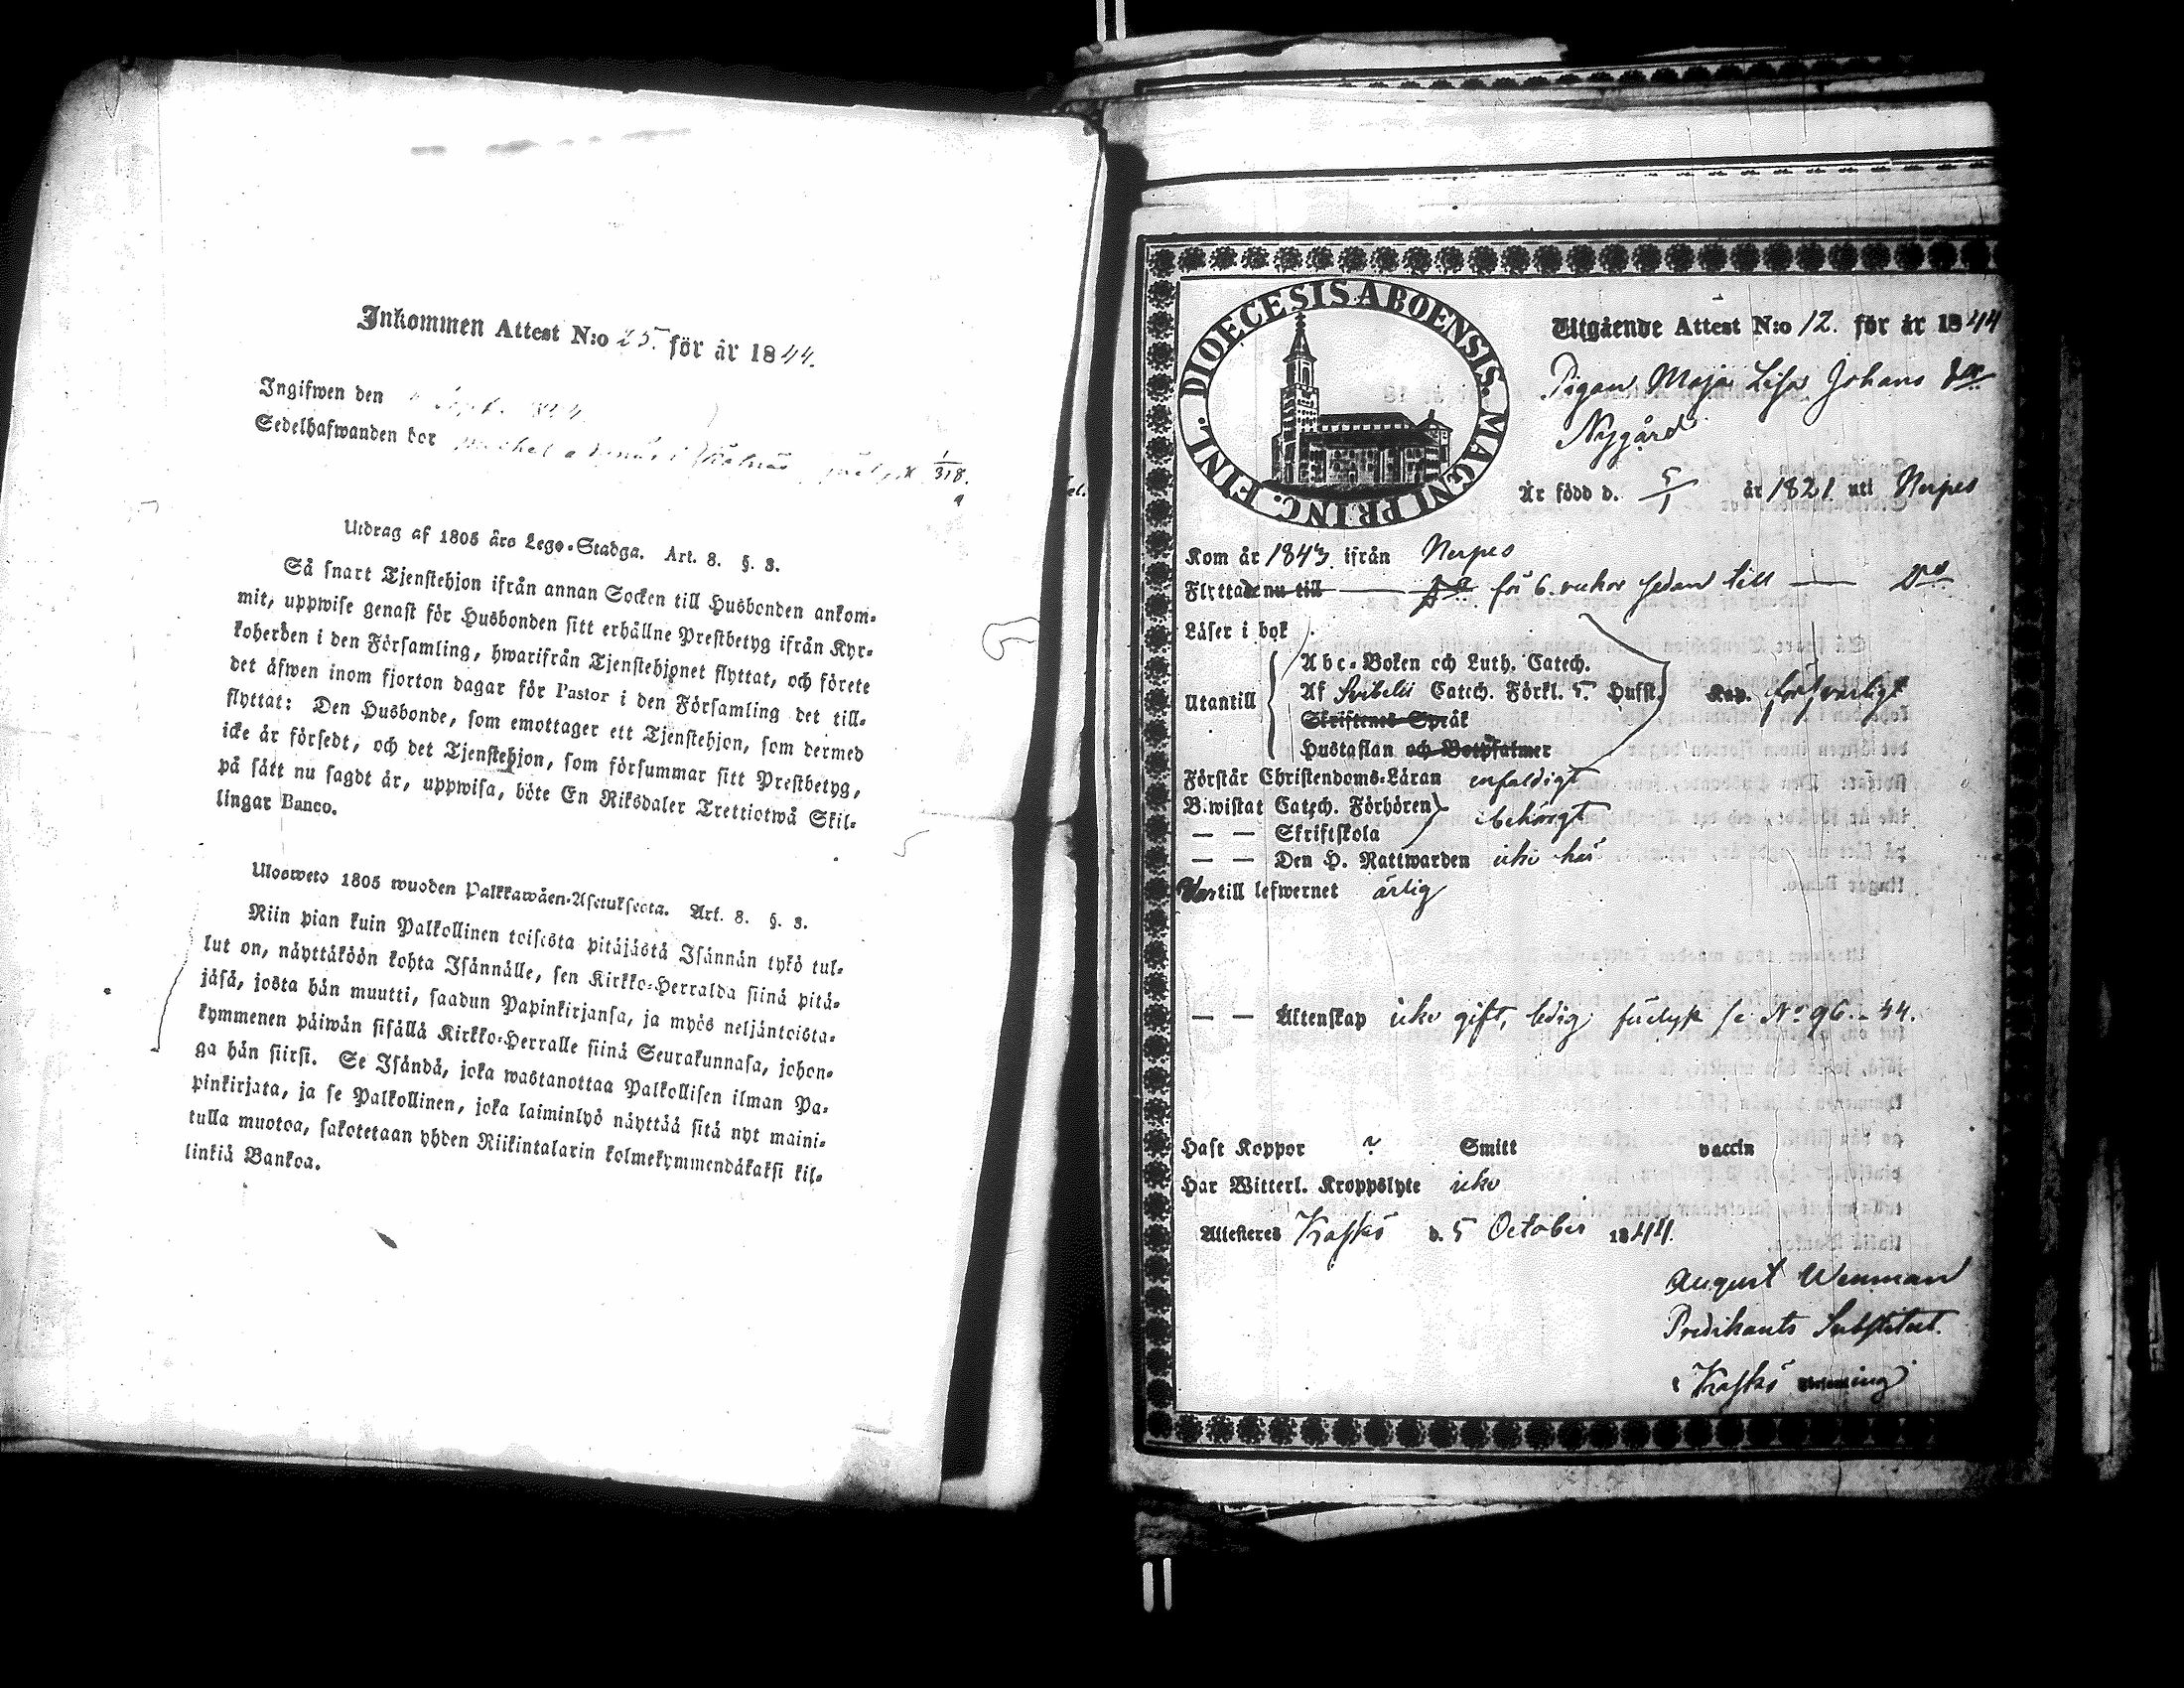 Inkommen Attest N:o 25. för år 1844.
Ingifwen den
Sedelhafwanden bor 1/318.
Utdrag af 1805 års Lego-Stadga. Art. 8. §. 3.
Så snart Tjenstehjon ifrån annan Socken till Husbonden ankom-
mit, uppwise genast för Husbonden sitt erhållne Prestbetyg ifrån Kyr-
koherden i den Församling, hwarifrån Tjenstehjonet flyttat, och förete
det äfwen inom fjorton dagar för Pastor i den Församling det till-
flyttat: Den Husbonde, som emottager ett Tjenstehjon, som dermed
icke är försedt, och det Tjenstehjon, som försummar sitt Prestbetyg,
på sätt nu sagdt är, uppwisa, böte En Riksdaler Trettiotwå Skil-
lingar Banco.
Ulosweto 1805 wuoden Palkkawäen-Asetuksesta. Art. 8. §. 3.
Niin pian kuin Palkollinen toisesta pitäjästä Isännän tykö tul-
lut on, näyttäköön kohta Isännälle, sen Kirkko-Herralda siinä pitä-
jäsä, josta hän muutti, saadun Papinkirjansa, ja myös neljäntoista-
kymmenen päiwän sisällä Kirkko-Herralle siinä Seurakunnasa, johon-
ga hän siirsi. Se Isändä, joka wastanottaa Palkollisen ilman Pa-
pinkirjata, ja se Palkollinen, joka laiminlyö näyttää sitä nyt maini-
tulla muotoa, sakotetaan yhden Riikintalarin kolmekymmendäkaksi kil-
linkiä Bankoa.
DIOECESIS ABOENSIS. MAGNI PRINC. FINL.
Utgående Attest N:o 12. för år 1844
Pigan Maja Lisa Johans dr
Nygård
Är född d. 5/1 år 1821 uti Nerpes
Kom år 1843. ifrån Nerpes
Flyttade nu till för 6. veckor sedan till — Do
Läser i bok
Abc-Boken och Luth. Catech.
Utantill Af Svibelii Catech. Förkl. 5. Hufst. Kap. försvarligt
Skriftenes Språk
Hustaflan och Botpsalmer
Förstår Christendoms-Läran enfaldigt
Bewistat Catech. Förhören behörigt
— — Skriftskola
— — Den H. Nattwarden icke här
Var till lefwernet ärlig
— — Äktenskap icke gift, ledig N:o 96. - 44.
Haft Koppor ? Smitt vaccin
Har Witterl. Kroppslyte icke
Attesteres Kaskö d. 5 October 1844.
August Wenman
Predikants Substitut.
i Kaskö